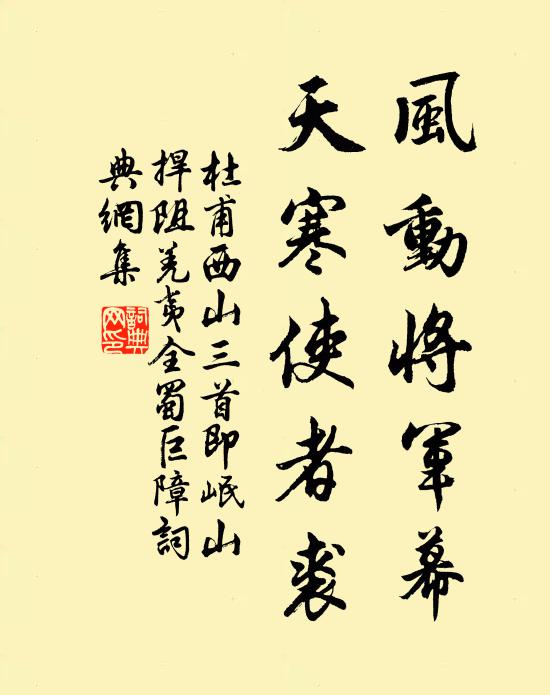 風動將軍幕
天寒使者裘
杜甫西山三首即岷山
捍阻羌夷全蜀巨障詞
典網集
詞典
网印